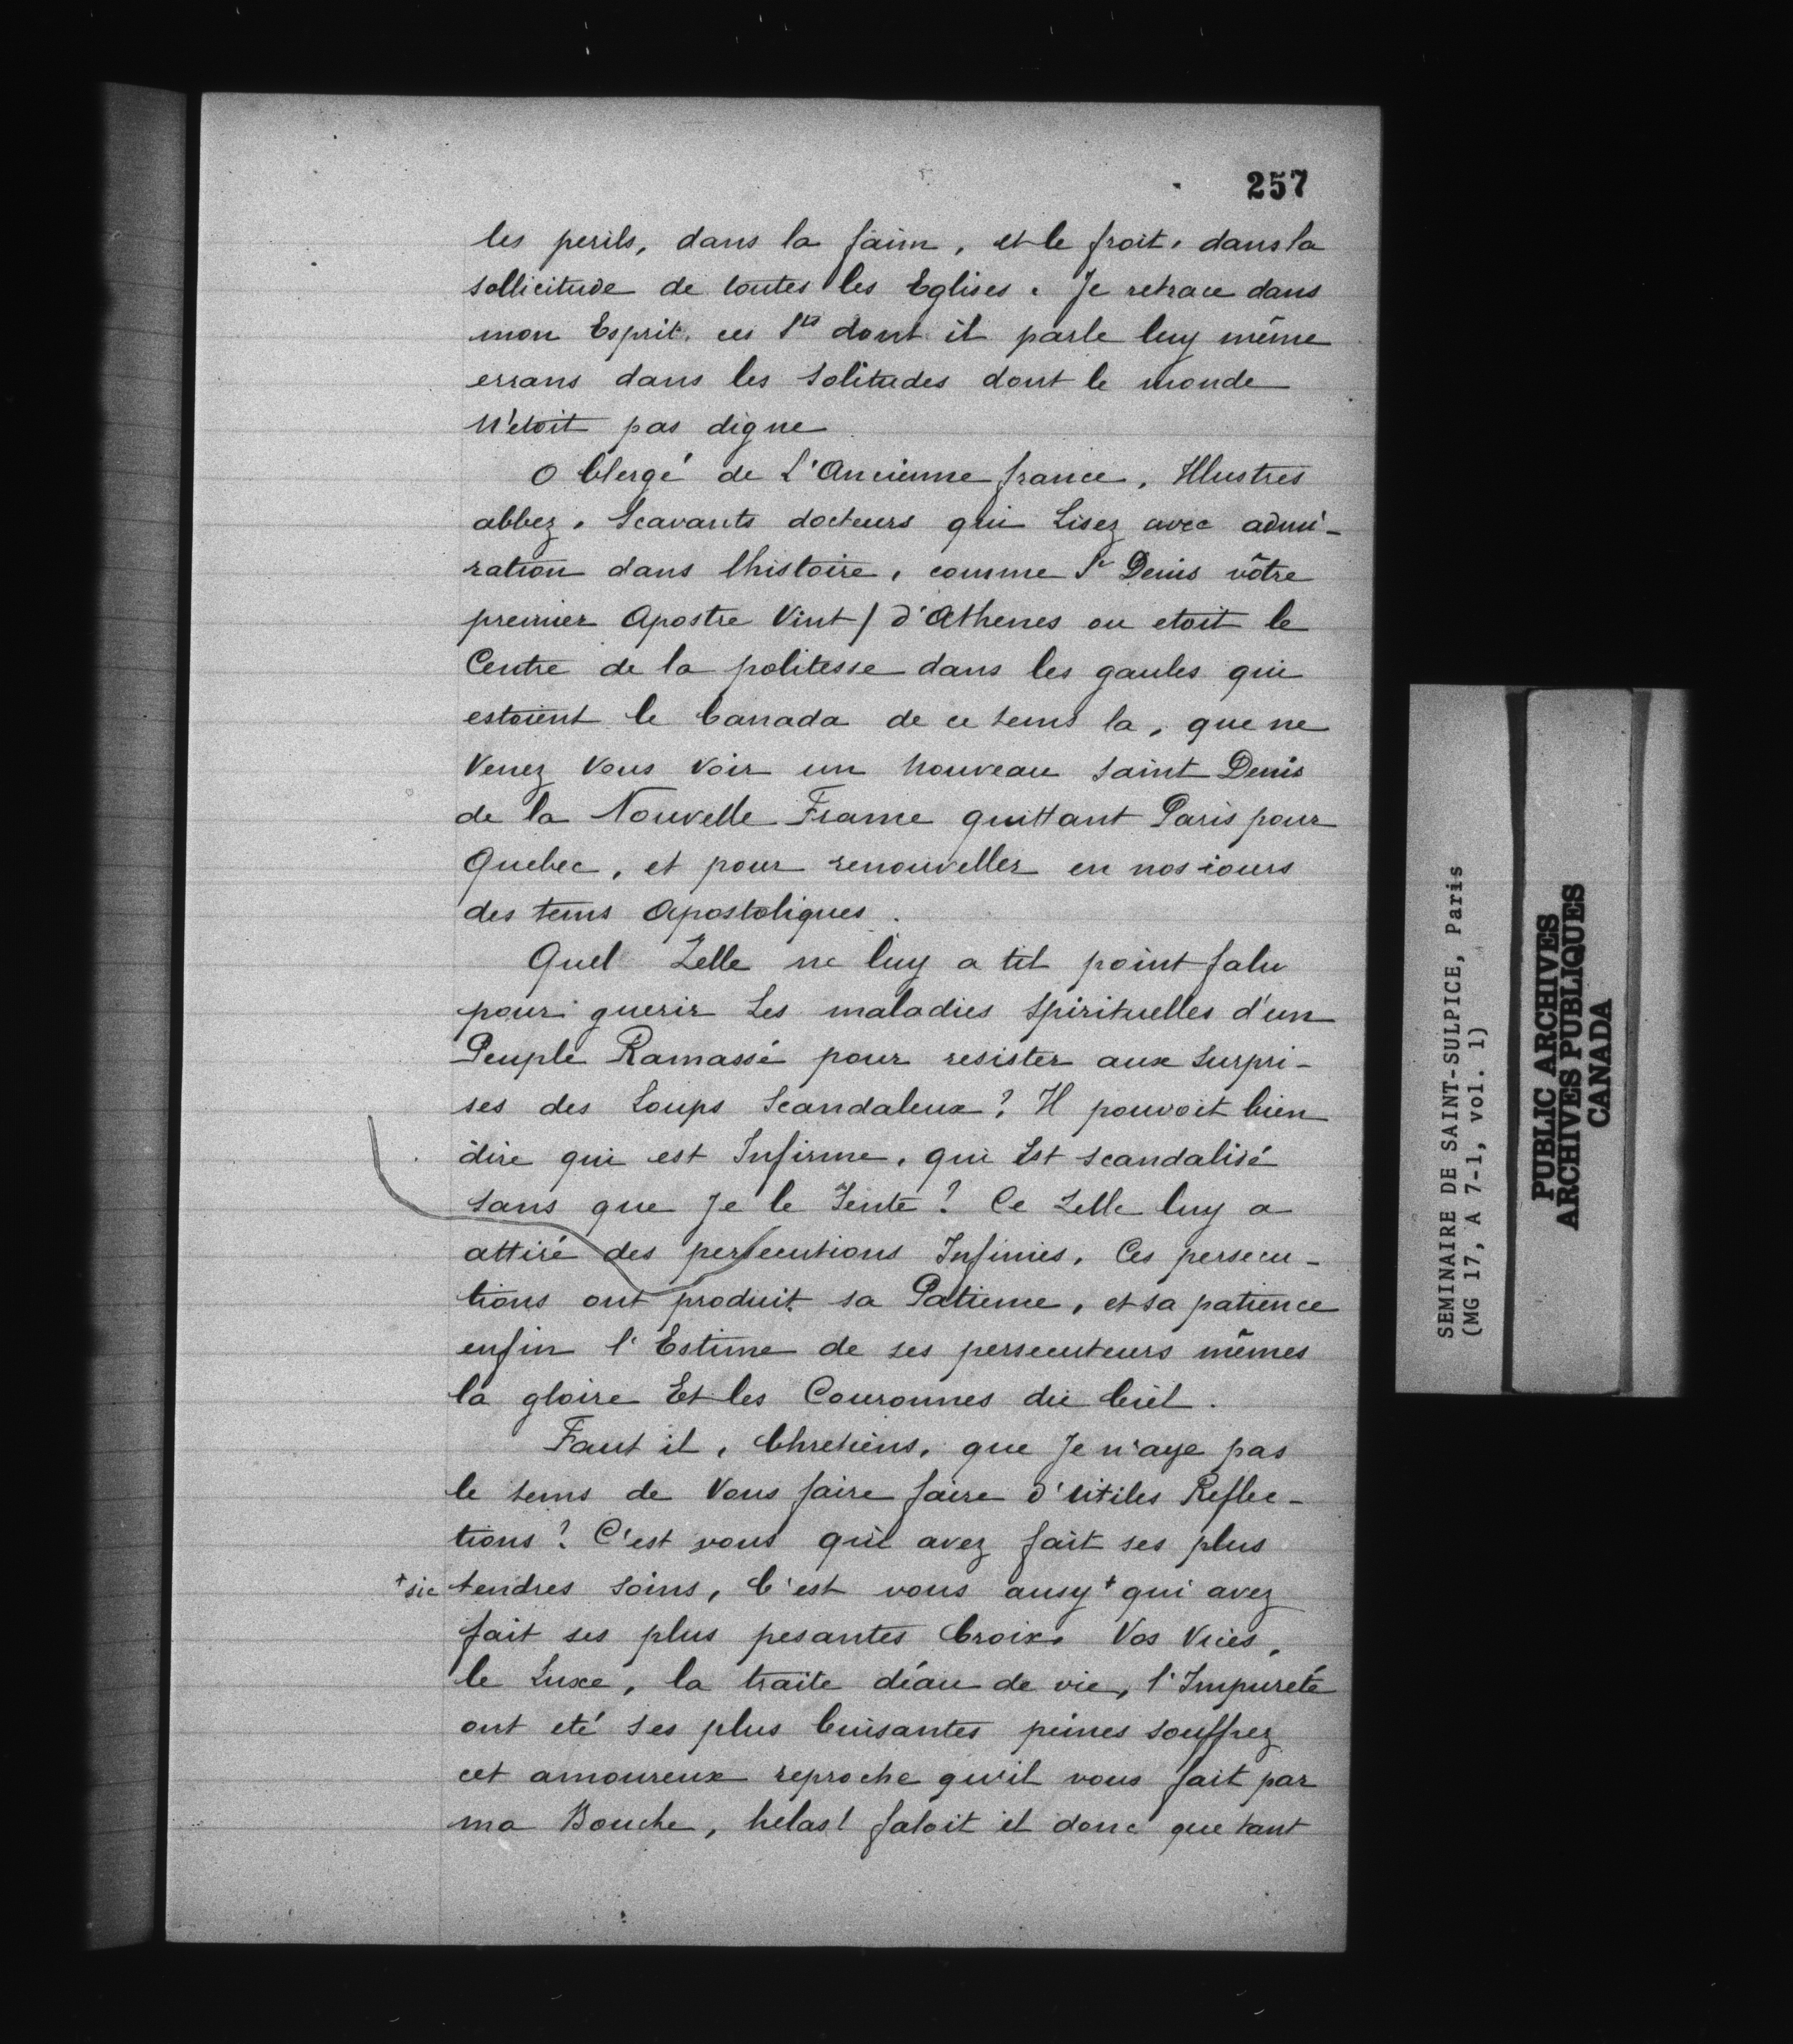 257
les perils, dans la faim, et le froit, dans la
sollicitude de toutes les Eglises. Je retrace dans
mon Esprit, ces Sts dont il parle luy même
errans dans les Solitudes dont le monde
N'etoit pas digne
O Clergé de L'Ancienne france, Illustres
abbez, Scavants docteurs qui Lisez avec admi-
ration dans lhistoire, comme St Denis vôtre
premier Apostre Vint / d'Athenes ou etoit le
Centre de la politesse dans les gaules qui
estoient le Canada de ce tems la, que ne
Venez Vous Voir un Nouveau Saint Denis
de la Nouvelle France quittant Paris pour
Quebec, et pour renouveller en nos iours
des tems Apostoliques.
Quel Zelle ne luy a til point falu
pour guerir Les maladies Spirituelles d'un
Peuple Ramassé pour resister aux Surpri-
ses des Loups Scandaleux? Il pouvoit bien
dire qui est Infirme, qui Est scandalisé
Sans que Je le Sente? Ce Zelle luy a
attiré des persecutions Infinies, Ces persecu-
tions ont produit sa Patience, et sa patience
enfin l'Estime de ses persecuteurs mêmes
la gloire Et les Couronnes du Ciel.
Faut il, Chretiens, que Je n'aye pas
le tems de Vous faire faire d'Utiles Reflec-
tions? C'est vous qui avez fait ses plus
+sic tendres soins, C'est vous ausy+ qui avez
fait ses plus pesantes Croix. Vos Vices,
le Luxe, la traite déau de vie, l'Impureté
ont eté Ses plus Cuisantes peines souffrez
cet amoureux reproche qu'il vous fait par
ma Bouche, helas! faloit il donc que tant
SEMINAIRE DE SAINT-SULPICE, Paris
(MG 17, A 7-1, vol. 1)
PUBLIC ARCHIVES
ARCHIVES PUBLIQUES
CANADA